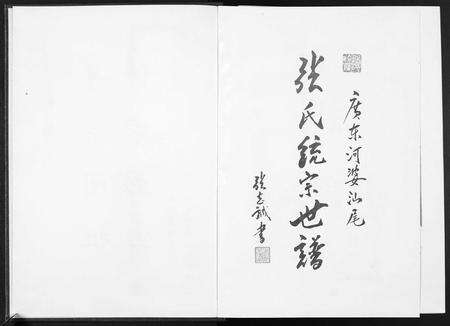 廣东河婆汕尾
张氏统宗世譜
张志诚書